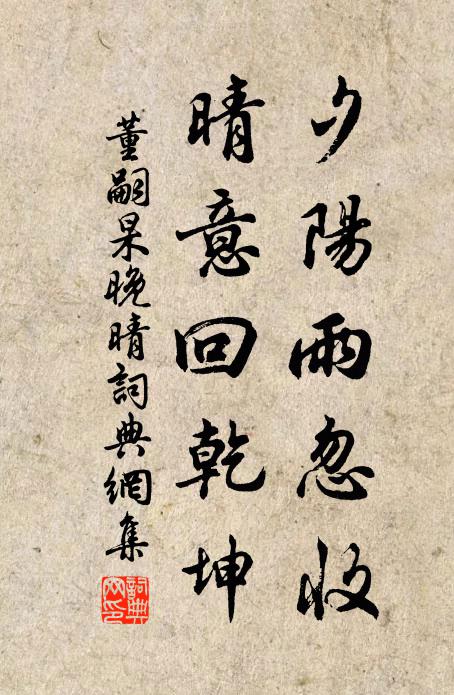 夕陽雨忽收
晴意回乾坤
董嗣杲晚晴詞典網集
詞典網印